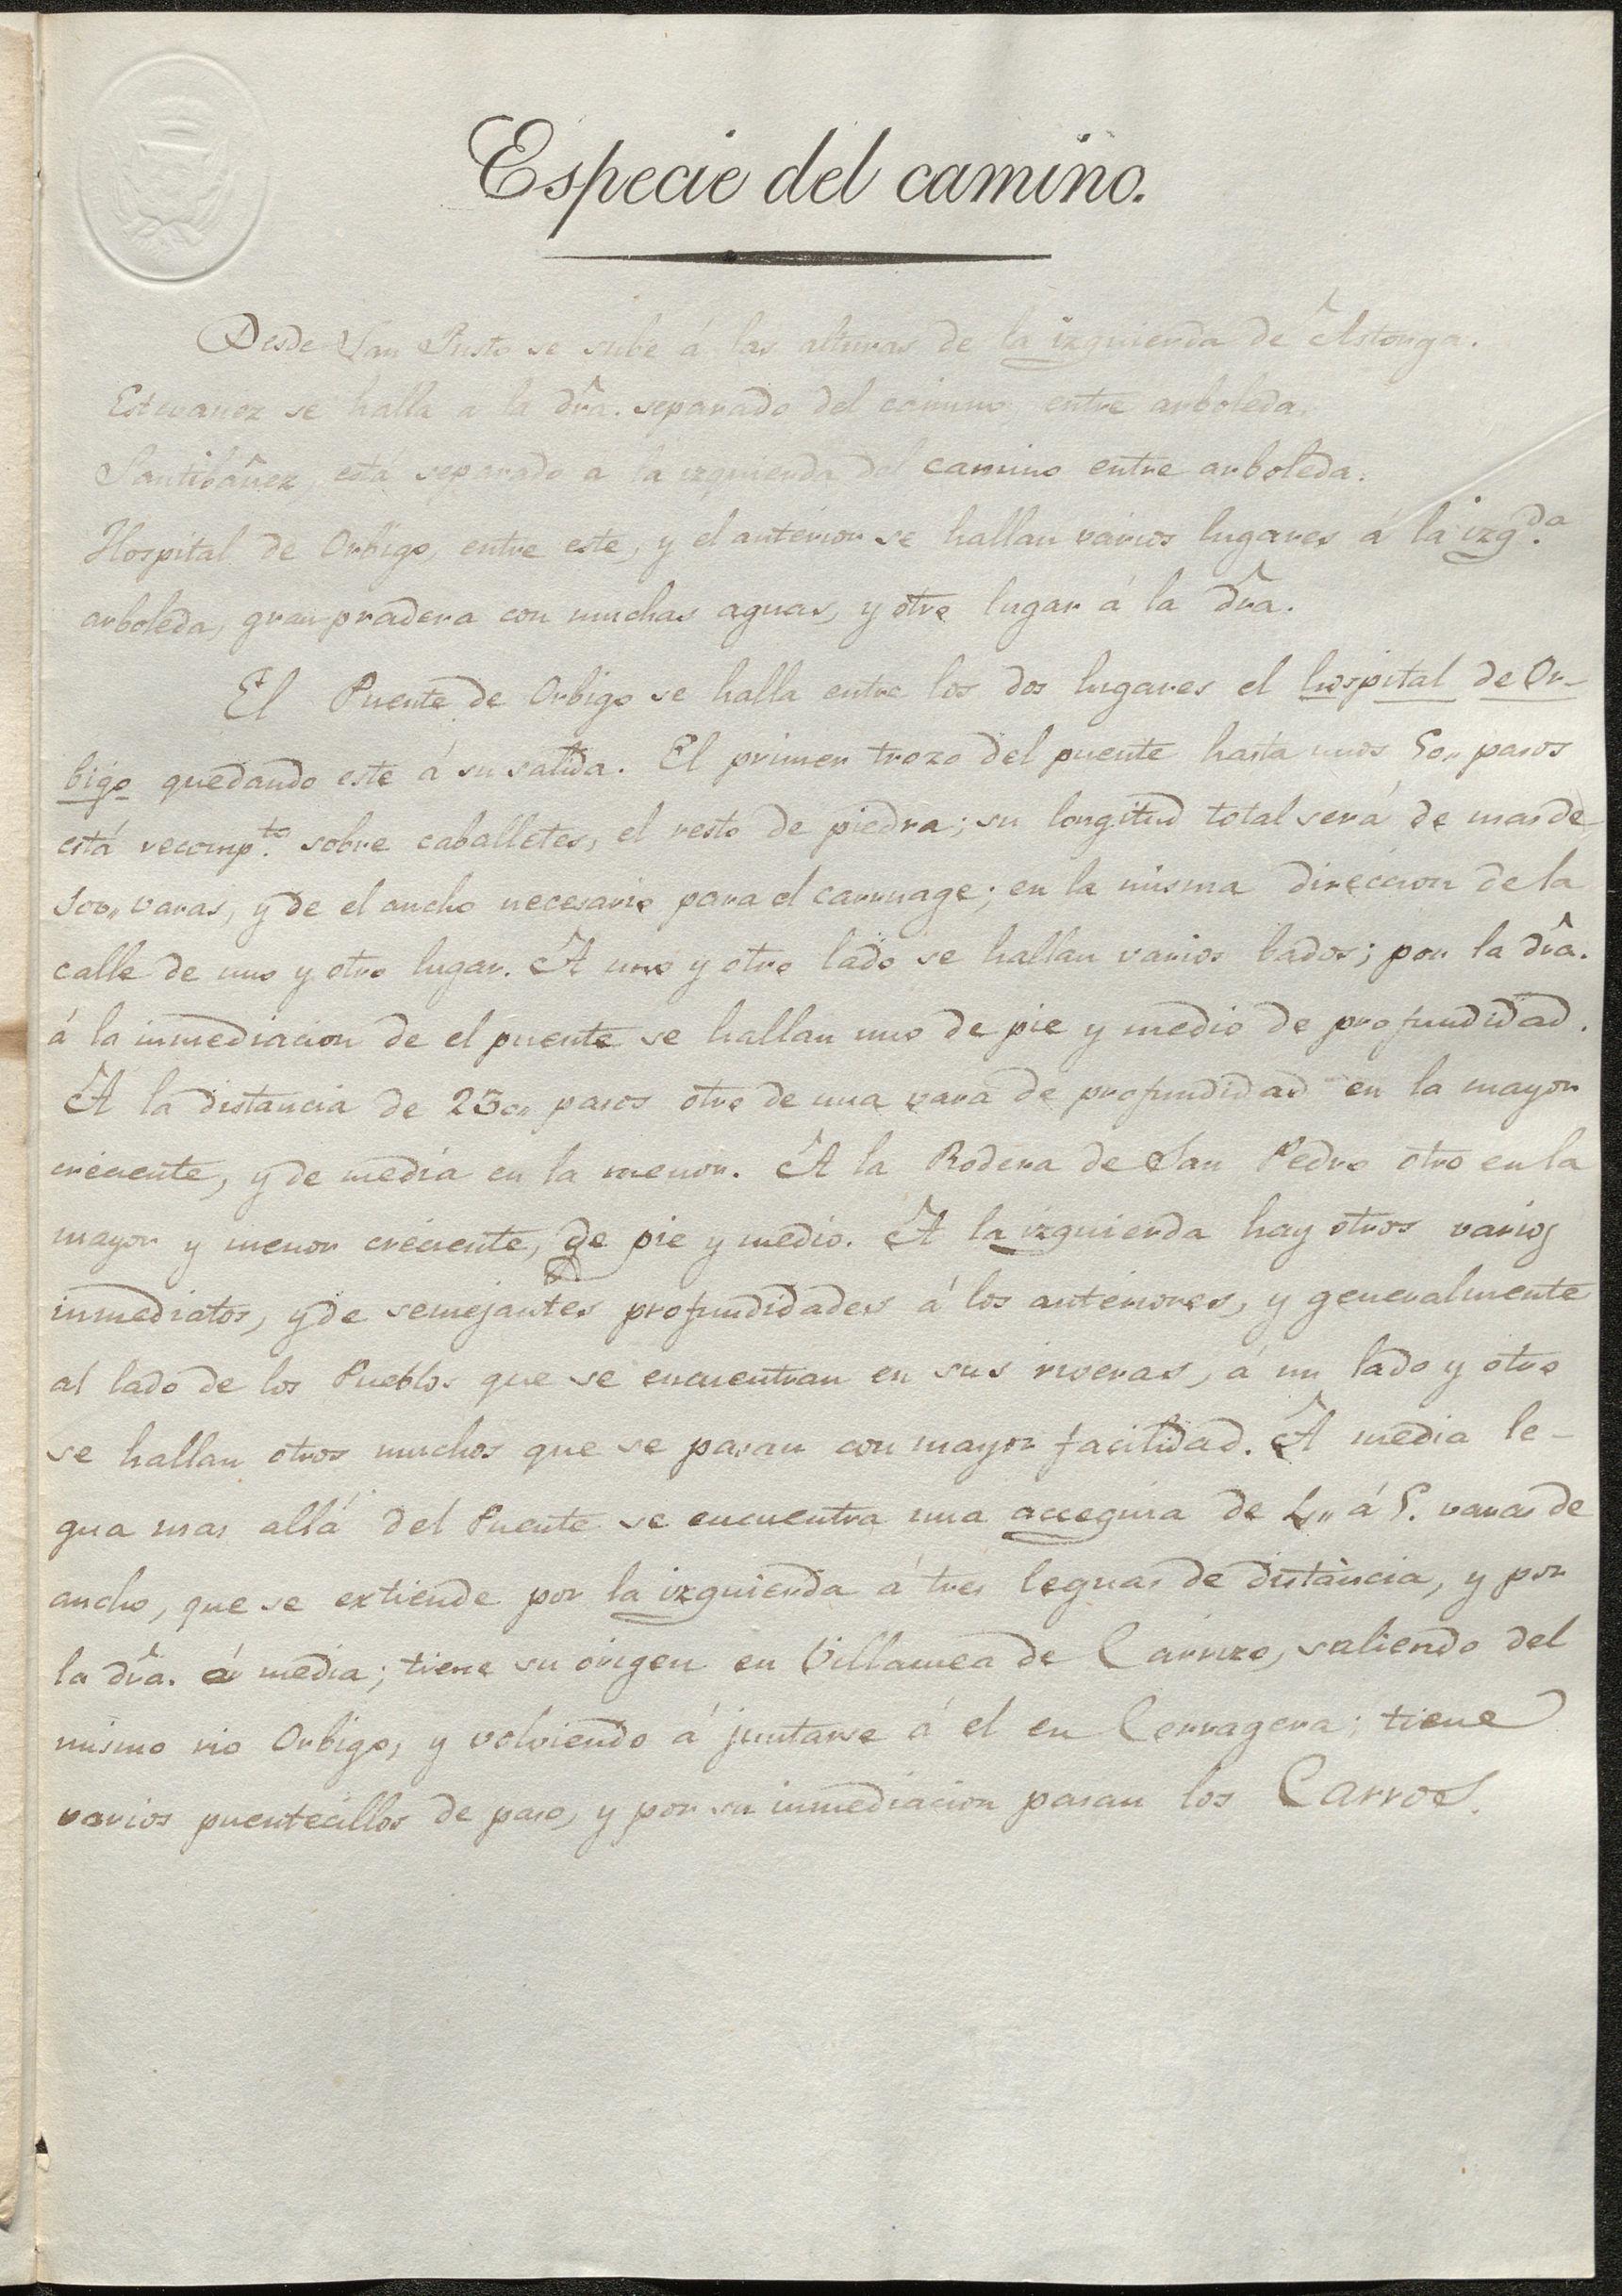 Especie del camino.
Desde San Justo se sube á las alturas de la izquierda de Astorga.
Estevanez se halla a la dr̂a. separado del camino, entre arboleda.
Santibáñez, esta separado a la izquierda del camino entre arboleda.
Hospital de Orbigo, entre este, y el anterior se hallan varios lugares á la izqᵈᵃ.
arboleda, gran pradera con muchas aguas, y otro lugar á la dr̂a.
El Puente de Orbigo se halla entre los dos lugares el hospital de Or-
bigo quedando este á su salida. El primer trozo del puente hasta unos 50,, pasos
está recompᵗᵒ. sobre caballetes, el resto de piedra; su longitud total será de mas de
300,, varas, y de el ancho necesario para el carruage; en la misma direccion de la
calle de uno y otro lugar. A uno y otro lado se hallan varios bados; por la dr̂a.
á la inmediacion de el puente se hallan uno de pie y medio de profundidad.
A la distancia de 250,, pasos otro de una vara de profundidad en la mayor
creciente, y de media en la menor. A la Rodera de San Pedro otro en la
mayor y menor creciente, de pie y medio. A la izquierda hay otros varios
inmediatos, y de semejantes profundidades á los anteriores, y generalmente
al lado de los Pueblos que se encuentran en sus riveras, á un lado y otro
se hallan otros muchos que se pasan con mayor facilidad. A media le-
gua mas allá del Puente se encuentra una accequia de 4,, á 5. varas de
ancho, que se extiende por la izquierda á tres leguas de distancia, y por
la dr̂a. á media; tiene su origen en de Carrizo, saliendo del
mismo rio Orbigo, y volviendo á juntarse á el en Cerragera; tiene
varios puentecillos de paso, y por su inmediacion pasan los Carros.